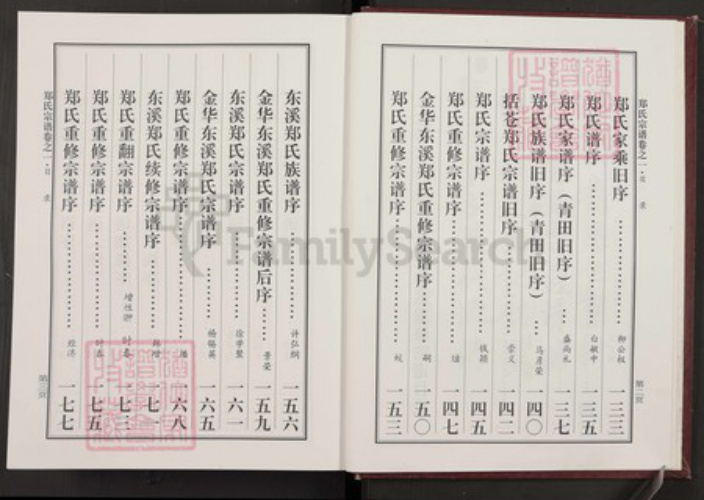 郑氏宗谱卷之一·目 录
郑氏家乘旧序 柳公权 一三三
郑氏谱序 白敏中 一三五
郑氏家谱序（青田旧序） 盛尚礼 一三七
郑氏族谱旧序（青田旧序） 马彦荣 一四〇
括苍郑氏宗谱旧序 崇义 一四二
郑氏宗谱序 钱颖 一四五
郑氏重修宗谱序 一四七
金华东溪郑氏重修宗谱序 嗣 一五〇
郑氏重修宗谱序 一五三
第二页
东溪郑氏族谱序 许弘纲 一五六
金华东溪郑氏重修宗谱后序 景荣 一五九
东溪郑氏宗谱序 徐学聚 一六一
金华东溪郑氏宗谱序 杨锡英 一六五
郑氏重修宗谱序 一六八
东溪郑氏续修宗谱序 一七一
郑氏重翻宗谱序 增性卿 时春 一七三
郑氏重修宗谱序 时春 一七五
郑氏重修宗谱序 经济 一七七
郑氏宗谱卷之一·目 录
第三页
FamilySearch